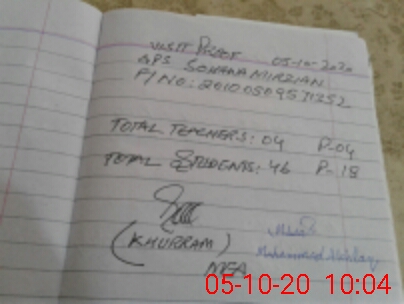 VISIT PROOF 05-10-2020
GPS SOHANA MIRZIAN
TOTAL TEACHERS: 04 P-04
TOTAL STUDENTS: 46 P-18
(KHURRAM)
MEA
Muhammad
05-10-20 10:04